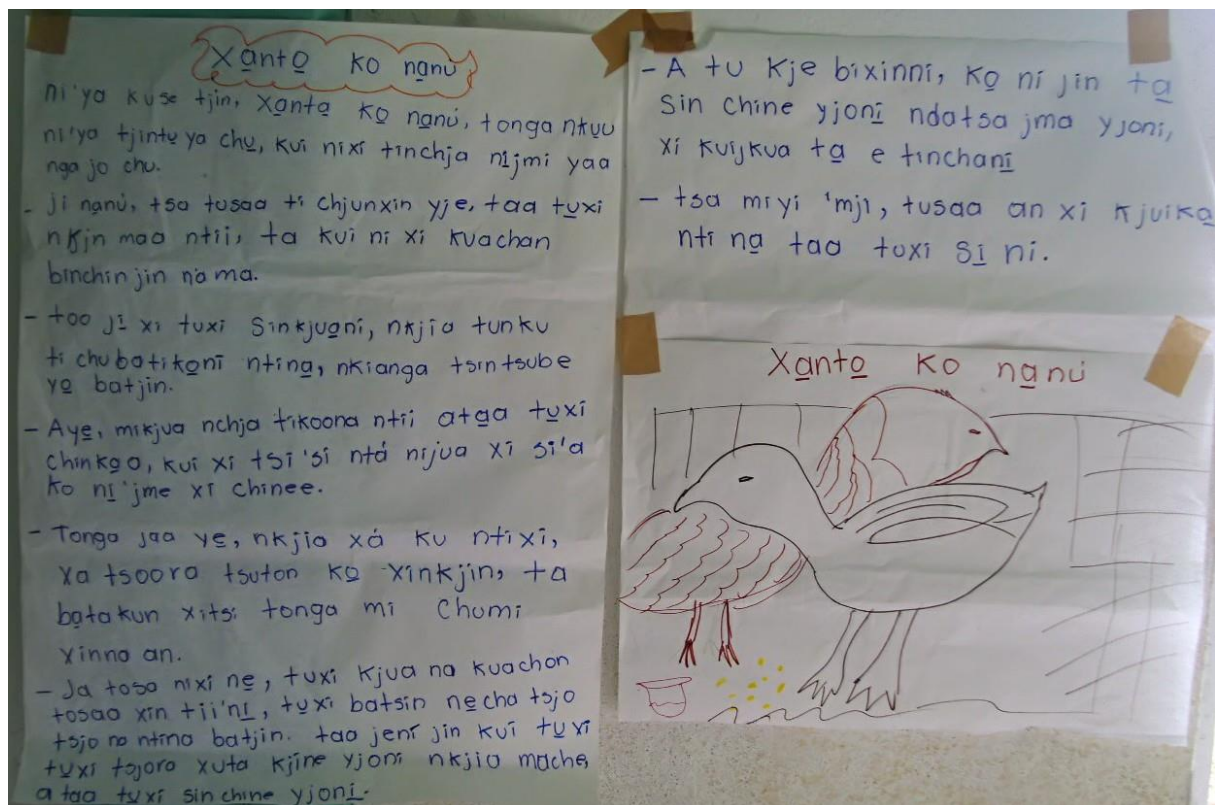 Xa̱nto̱ ko na̱nú
ni'ya kuse tjin, Xa̱nta̱ ko̱ na̱nú, tonga nkuu
ni'ya tjintu ya chu̱, kui nixi tinchja ni̱jmi yaa
nga jo chu.
- ji na̱nú, tsa tusaa ti chjunxin yje, taa tu̱xi
nkjin maa ntii, ta kui ni xi kuachan
binchin jin na ma.
- too ji̱ xi tuxi sinkjua̱ni, nkjia tunku
ti chu batiko̱ni ntina̱, nkianga tsintsube
yo̱ batjin.
- Aye̱, mikjua nchja tikoona ntii ata̱a tu̱xi
chinko̱o, kui xi tsi'si ntá nijua xi si'a
ko ni̱'jme xi chinee.
- Tonga jaa ye̱, nkjia xá ku ntixi,
xa tsooro tsuton ko̱ xinkjin, ta
ba̱takun xitsi tonga mi chumi
xinna an.
- Ja tosa nixi ne̱, tuxi kjua na kuachon
tosaa xin tii'ni̱, tu̱xi batsin ne̱cha tsjo
tsjo na ntina batjin. taa jení jin kuí tu̱xi
tu̱xi tsjora xuta kjine yjoni nkjia mache,
a taa tu̱xi sinchine yjoni̱.
- A tu kje bixinni, ko̱ ni jin ta̱
sin chine yjoni̱ ndatsa jma yjoni,
xi kuijkua ta̱ e tinchani̱
- tsa miyi 'mji, tusaa an xi kjuika̱
nti na̱ taa tuxi si̱ ni.
Xa̱nto̱ ko na̱nú